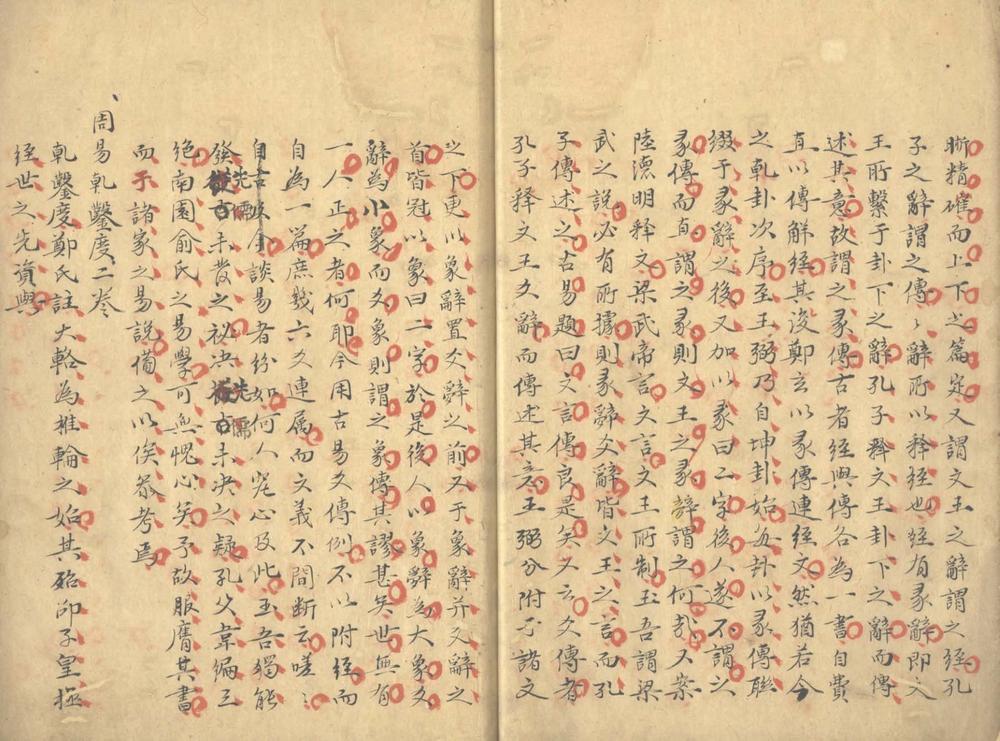 晰精確而上下之篇定又謂文王之辭謂之經孔
子之辭謂之傳〻辭所以釋經也經有彖辭即文
王所繫于卦下之辭孔子釋文王卦下之辭而傳
述其意故謂之彖傳古者經與傳各為一書自費
直以傳解經其後鄭玄以彖傳連經文然猶若今
之乾卦次序至王弼乃自坤卦始每卦以彖傳聯
綴于彖辭之後又加以彖曰二字後人遂不謂之
彖傳而直謂之彖則文王之彖辭謂之何哉又案
陸德明释文梁武帝言文言文王所制玉吾謂梁
武之說必有所據則彖辭爻辭皆文王之言而孔
子傳述之古易題曰文言傳良是矣又云爻傳者
孔子释文王爻辭而傳述其意王弼分附于諸爻
之下更以象辭置爻辭之前又于象辭并爻辭之
首皆冠以象曰二字於是後人以象辭為大象爻
辭為小象而爻象則謂之象傳其謬甚矣世無有
一人正之者何耶今用古易爻傳例不以附經而
自為一篇庶幾六爻連属而文義不間断云嗟〻
自古迄今談易者紛如何人究心及此玉吾獨能
發先儒未發之祕决先儒未决之疑孔父韋編三
絕南園俞氏之易學可無愧心矣予故服膺其書
而于諸家之易說備之以俟叅考焉
周易乾鑿度二卷
乾鑿度鄭氏註大輅為椎輪之始其殆卲子皇極
經世之先資與